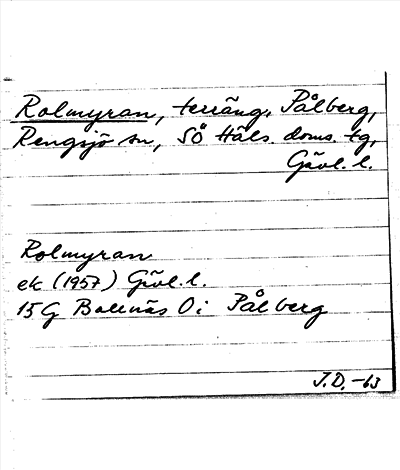 Rolmyran, terräng, Pålberg,
Rengsjö sn, SÖ Häls. doms. tg,
Gävl. l.
Rolmyran
ek (1957) Gävl. l.
15 G Bollnäs O i Pålberg
J.D. -63